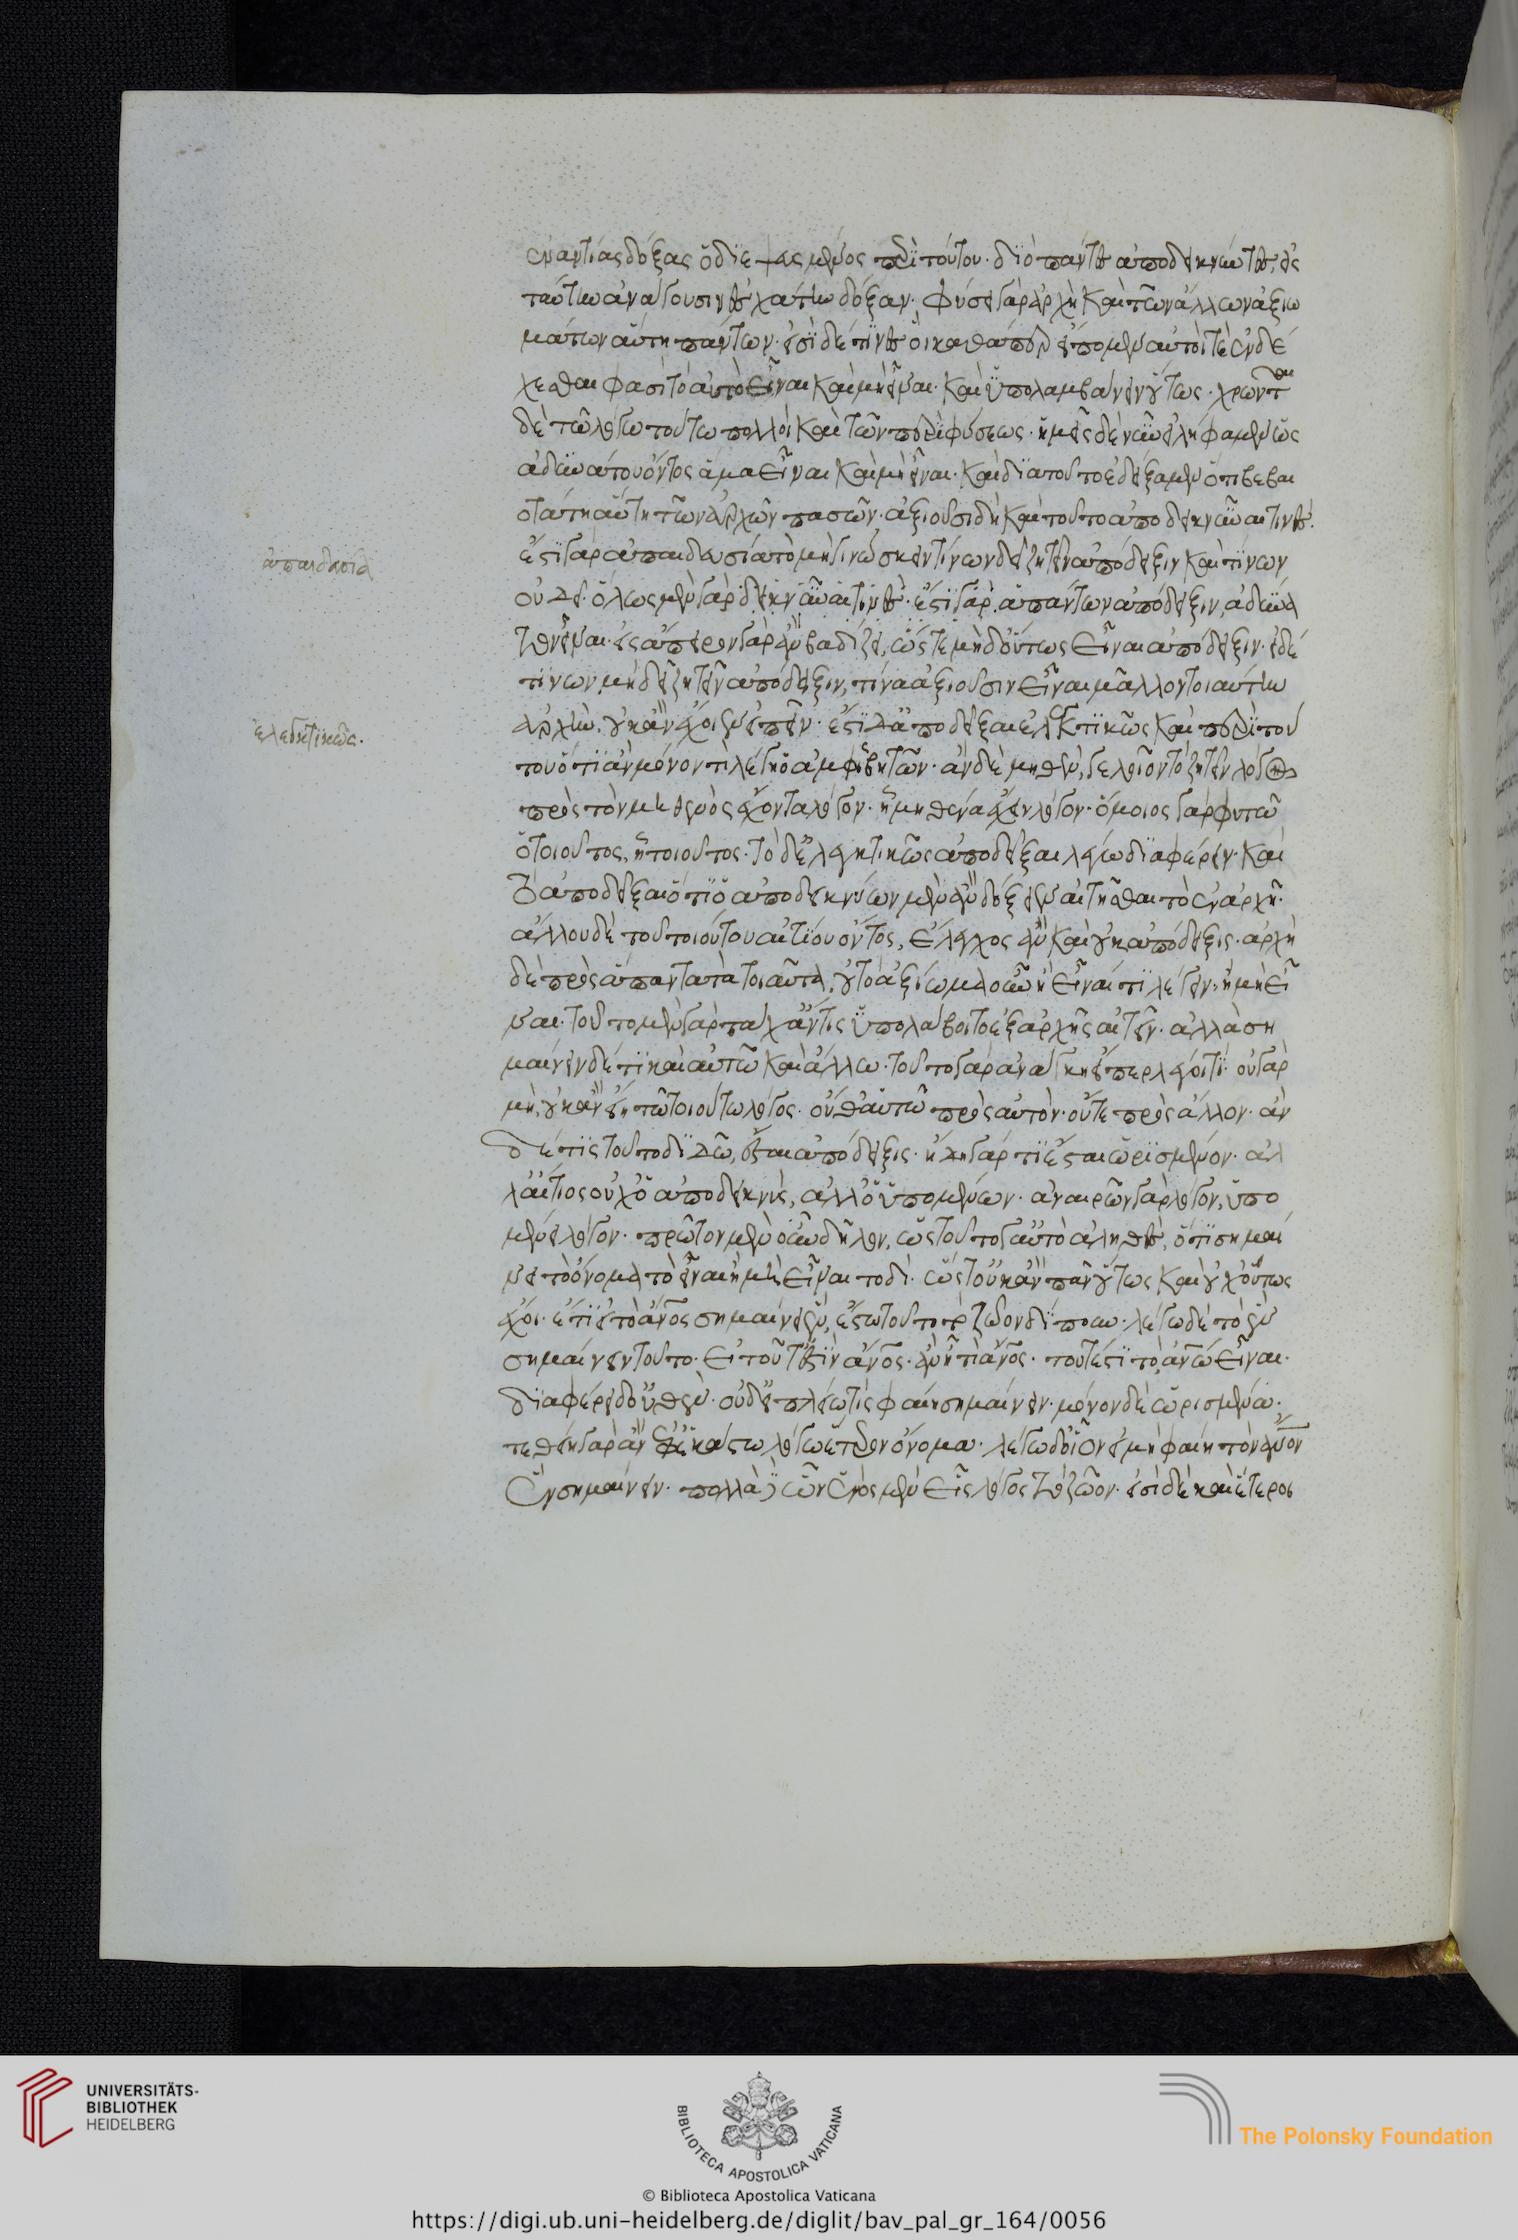 ἐναντίας δόξας ὁ διεψευσμένος περὶ τούτου. διὸ πάντες ἀποδεικνύντες, εἰς
ταύτην ἀνάγουσιν ἐσχάτην δόξαν. φύσει γὰρ ἀρχὴ καὶ τῶν ἄλλων ἀξιω
μάτων αὕτη πάντων. εἰσὶ δέ τινες οἳ καθάπερ εἴπομεν αὐτοί τε ἐνδέ
χεσθαι φασὶ τὸ αὐτὸ εἶναι καὶ μὴ εἶναι. καὶ ὑπολαμβάνειν οὕτως. χρῶνται
δὲ τῶ λόγω τούτω πολλοὶ καὶ τῶν περὶ φύσεως. ἡμεῖς δὲ νῦν εἰλήφαμεν ὡς
ἀδυνάτου ὄντος ἅμα εἶναι καὶ μὴ εἶναι. καὶ διὰ τοῦτο ἐδείξαμεν ὅτι βεβαι
οτάτη αὕτη τῶν ἀρχῶν πασῶν. ἀξιοῦσι δὴ καὶ τοῦτο ἀποδεικνύναι τινές.
ἀπαιδευσία
ἔστι γὰρ ἀπαιδευσία τὸ μὴ γινώσκειν τίνων δεῖ ζητεῖν ἀπόδειξιν καὶ τίνων
οὐ δεῖ. ὅλως μὲν γὰρ ἁπάντων ἀπόδειξιν, ἀδύνα
τον εἶναι. εἰς ἄπειρον γὰρ ἂν βαδίζει, ὥστε μηδ' οὕτως εἶναι ἀπόδειξιν. εἰ δέ
τίνων μὴ δεῖ ζητεῖν ἀπόδειξιν, τίνα ἀξιοῦσιν εἶναι μᾶλλον τοιαύτην
ἐλεγκτικῶς.
ἀρχὴν, οὐκ ἂν ἔχοιεν εἰπεῖν. ἔστι δ' ἀποδεῖξαι ἐλεγκτικῶς καὶ περὶ τού
του ὅτι ἂν μόνον τι λέγη ὁ ἀμφισβητῶν. ἂν δὲ μηθὲν, γελοῖον τὸ ζητεῖν λόγον
πρὸς τὸν μηθενὸς ἔχοντα λόγον. ἢ μηθένα ἔχειν λόγον. ὅμοιος γὰρ φυτῶ
ὁ τοιοῦτος, ἢ τοιοῦτος. τὸ δ' ἐλεγκτικῶς ἀποδεῖξαι λέγω διαφέρειν. καὶ
τὸ ἀποδεῖξαι ὅτι ὁ ἀποδεικνύων μὲν ἂν δόξειεν αἰτεῖσθαι τὸ ἐν ἀρχῆ.
ἄλλου δὲ τοῦ τοιούτου αἰτίου ὄντος, ἔλεγχος ἂν καὶ οὐκ ἀπόδειξις. ἀρχὴ
δὲ πρὸς ἅπαντα τὰ τοιαῦτα, οὐ τὸ ἀξίωμα οὖν ἢ εἶναί τι λέγειν, ἢ μὴ εἶ
ναι. τοῦτο μὲν γὰρ τάχ' ἄν τις ὑπολάβοι τὸ ἐξ ἀρχῆς αἰτεῖν. ἀλλὰ ση
μαίνειν δέ τι καὶ αὐτῶ καὶ ἄλλω. τοῦτο γὰρ ἀνάγκη εἴπερ λέγοι τί. οὐ γὰρ
μὴ, οὐκ ἂν εἴη τῶ τοιούτω λόγος. οὔθ' αὑτῶ πρὸς αὐτὸν. οὔτε πρὸς ἄλλον. ἂν
δέ τις τοῦτο διδῶ, ἔσται ἀπόδειξις. ἤδη γάρ τι ἔσται ὡρισμένον. ἀλ
λ' αἴτιος οὐχ ὁ ἀποδεικνὺς, ἀλλ' ὁ ὑπομένων. ἀναιρῶν γὰρ λόγον, ὑπο
μένει λόγον. πρῶτον μὲν οὖν δῆλον, ὡς τοῦτο γ' αὐτὸ ἀληθὲς, ὅτι σημαί
νει τὸ ὄνομα τὸ εἶναι ἢ μὴ εἶναι τοδί. ὥστ' οὐκ ἂν πᾶν οὕτως καὶ οὐχ οὕτως
ἔχοι. ἔτι εἰ τὸ ἄνος σημαίνει ἓν, ἔστω τοῦτο τὸ ζῶον δίπουν. λέγω δὲ τὸ ἓν
σημαίνειν τοῦτο. εἰ τοῦτ' ἔστιν ἄνος. ἂν ἦ τι ἄνος. τοῦτ' ἔστι τὸ ἀνω εἶναι.
διαφέρει δ' οὐθὲν. οὐδ' εἰ πλείω τὶς φαίη σημαίνειν. μόνον δὲ ὡρισμένα.
τεθείη γὰρ ἂν ἐφ' ἑκάστω λόγω ἕτερον ὄνομα. λέγω δ' οἷον εἰ μὴ φαίη τὸν ἄνον
ἓν σημαίνειν. πολλὰ δὲ ὧν ἑνὸς μὲν εἷς λόγος τὸ ζῶον. εἰσὶ δὲ καὶ ἕτεροι
UNIVERSITÄTS-
BIBLIOTHEK
HEIDELBERG
BIBLIOTECA APOSTOLICA VATICANA
The Polonsky Foundation
© Biblioteca Apostolica Vaticana
https://digi.ub.uni-heidelberg.de/diglit/bav_pal_gr_164/0056